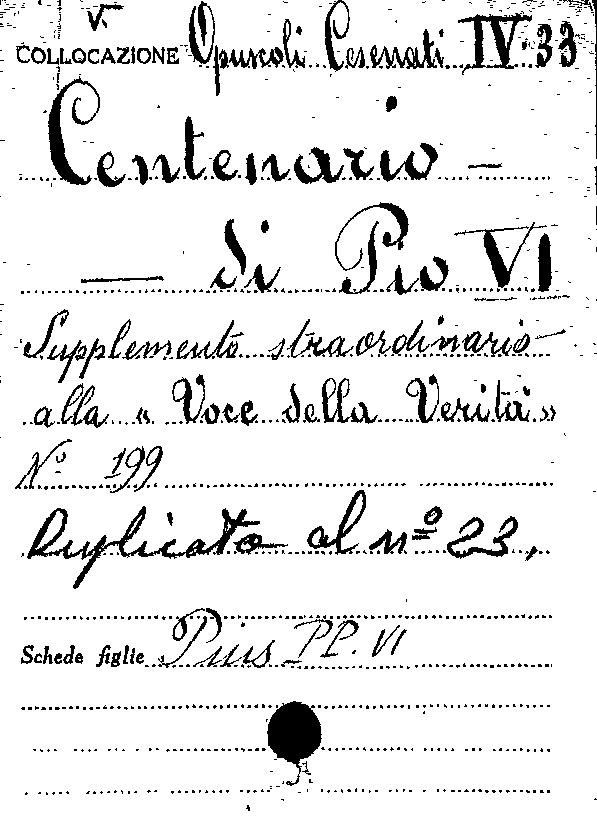 V.
COLLOCAZIONE Opuscoli Cesenati IV. 33
Centenario –
— di Pio VI
Supplemento straordinario
alla « Voce della Verità »
N.º 199
Duplicato al nº 23,
Schede figlie Pius PP. VI